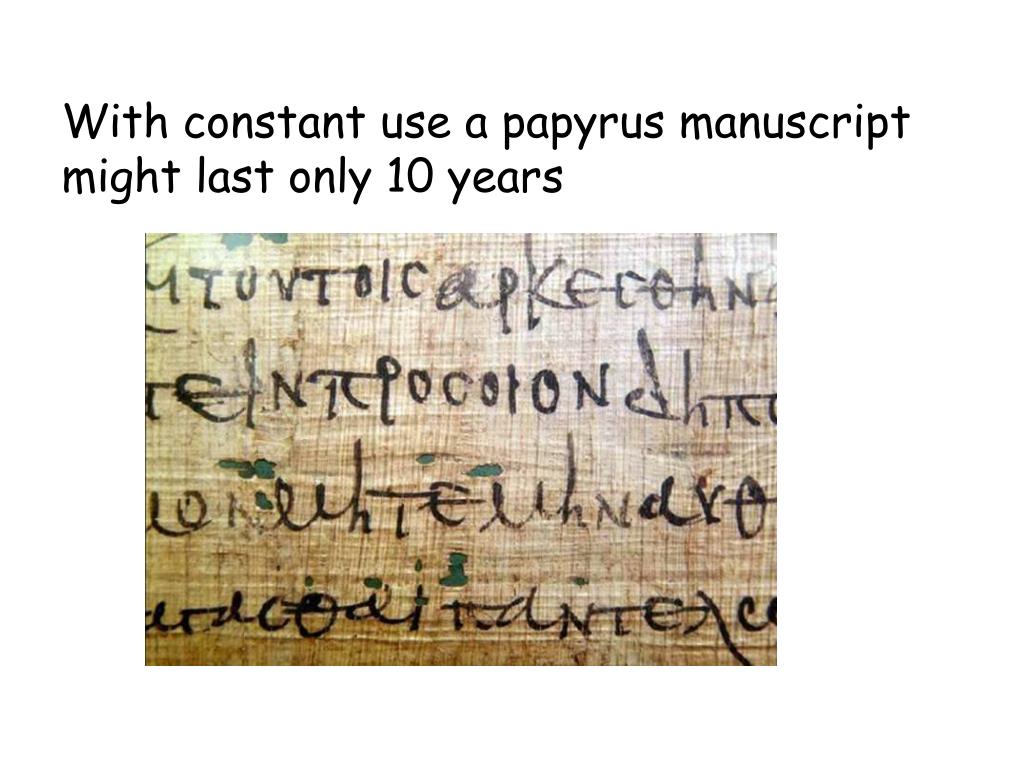 With constant use a papyrus manuscript
might last only 10 years
τουτοις αρκεσθην
τειν προς οιον δηπο
μητε μην αυθ
ασθαι παντελ